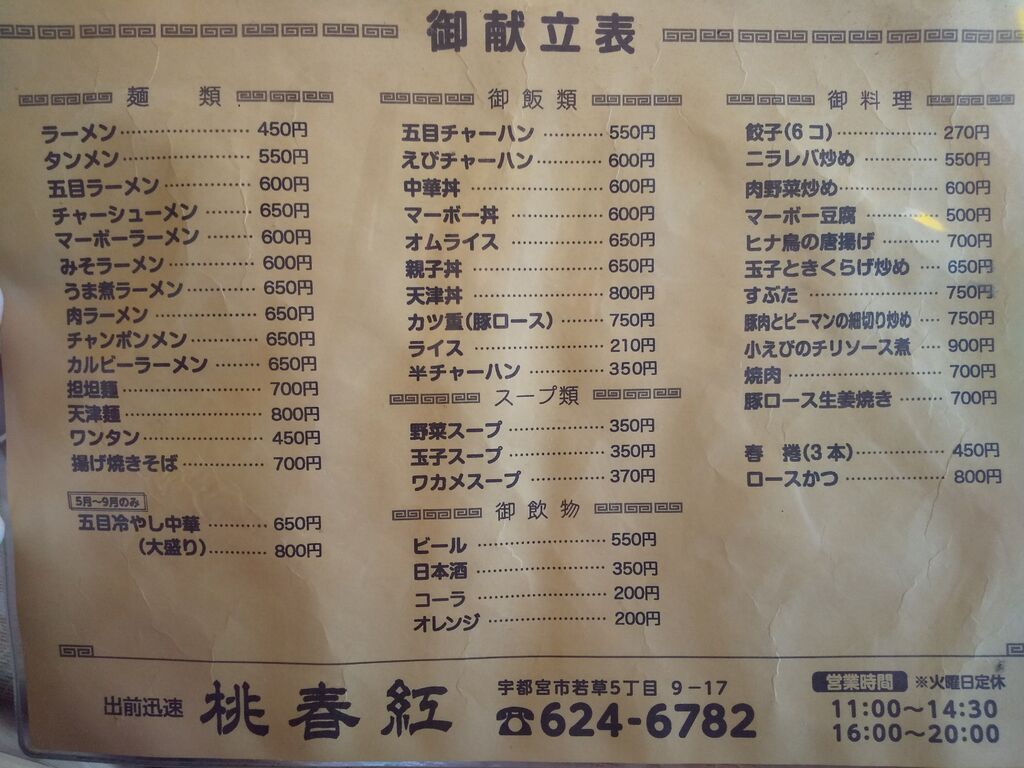 御献立表
麺類
ラーメン 450円
タンメン 550円
五目ラーメン 600円
チャーシューメン 650円
マーボーラーメン 600円
みそラーメン 600円
うま煮ラーメン 650円
肉ラーメン 650円
チャンポンメン 650円
カルビーラーメン 650円
担坦麺 700円
天津麺 800円
ワンタン 450円
揚げ焼きそば 700円
5月～9月のみ
五目冷やし中華 650円
(大盛り) 800円
御飯類
五目チャーハン 550円
えびチャーハン 600円
中華丼 600円
マーボー丼 600円
オムライス 650円
親子丼 650円
天津丼 800円
カツ重(豚ロース) 750円
ライス 210円
半チャーハン 350円
スープ類
野菜スープ 350円
玉子スープ 350円
ワカメスープ 370円
御飲物
ビール 550円
日本酒 350円
コーラ 200円
オレンジ 200円
御料理
餃子(6コ) 270円
ニラレバ炒め 550円
肉野菜炒め 600円
マーボー豆腐 500円
ヒナ鳥の唐揚げ 700円
玉子ときくらげ炒め 650円
すぶた 750円
豚肉とピーマンの細切り炒め 750円
小えびのチリソース煮 900円
焼肉 700円
豚ロース生姜焼き 700円
春捲(3本) 450円
ロースかつ 800円
出前迅速 桃春紅
宇都宮市若草5丁目 9－17
☎624-6782
営業時間 ※火曜日定休
11:00～14:30
16:00～20:00